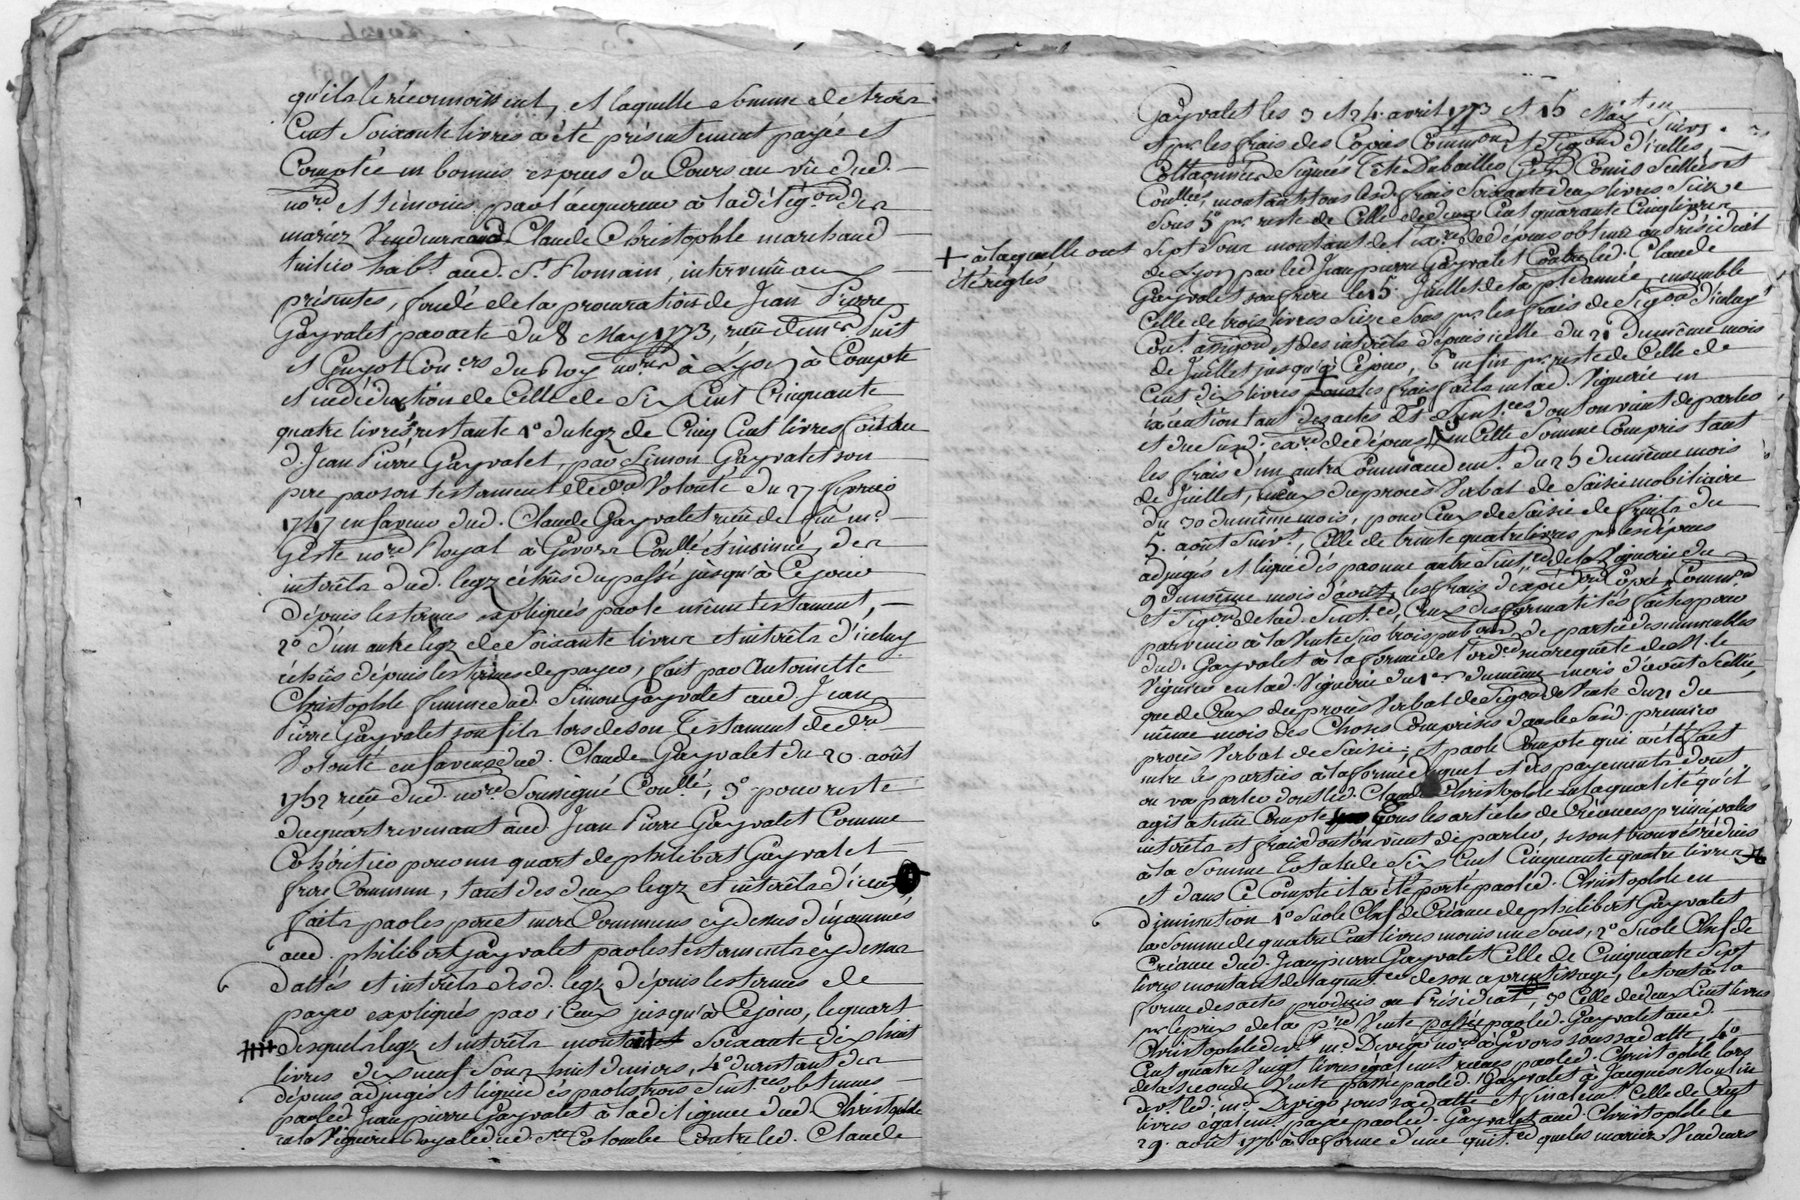 qu'ils le reconnoissent, et laquelle somme de trois
Cent soixante livres a été présentement payée et
Comptée en bonnes especes du Cours au vû dud.
nore. et témoins par l'acquereur à la délégon des
mariez Vendeurs aud. Claude Christophle marchand
habt. aud. St. Romain, intervenû aux
présentes, fondé de la procuration de Jean Pierre
Gayvalet par acte du 8 May 1773, reçû de mes
et Guyot Coners. du Roy nores à Lyon à Compte
et en déduction de Celle de Six Cent Cinquante
quatre livres restante 1°. du legz de Cinq Cent livres fait au
d. Jean Pierre Gayvalet, par Simon Gayvalet son
pere par son testament de dre. Volonté du 27 fevrier
1747 en faveur dud. Claude Gayvalet reçû de feu me.
nore. Royal à Givors Conllé. et insinué, des
intérêts dud. legz échûs du passé jusqu'à Ce jour
dépuis les termes expliqués par le même testament,
2° d'un autre legz de Soixante livres et intérêts d'iceluy
échûs dépuis les termes de payer, fait par Antoinette
Christophle femme dud. Simon Gayvalet aud. Jean
Pierre Gayvalet son fils lors de son Testament de dre.
Volonté en faveur dud. Claude Gayvalet du 20 août
1752 reçû dud. nore. Soussigné Conllé, 3°. pour reste
du quart revenant aud. Jean Pierre Gayvalet Comme
Cohéritier pour un quart de philibert Gayvalet
frere Commun, tant des deux legz et intérêts d'iceux
faits par les pere et mere Communs cy dessus dénommés
aud. philibert Gayvalet par les testaments cy dessus
dattés et intérêts desd. legz dépuis les termes de
payer expliqués par iceux jusqu'à Ce jour, le quart
desquels legz et intérêts montoit Soixante dix huit
livres dix neuf Sous huit deniers, 4° du restant des
dépens adjugés et liquidés par les trois Sentces. obtenues
par led. Jean pierre Gayvalet à la diligence dud. Christophle
en la Viguerie Royale dud. Ste. Colombe Contre led. Claude
Gayvalet les 3 et 24 avril 1773 et 15 May suivt.
et pr. les frais des Copies Common et Signon d'icelles,
Signés Commis Scellés et
Conllés, montants tous lesd. frais Soixante deux livres Seize
Sous 5° pr. reste de Celle de deux Cent quarante Cinq livres
Sept Sous montant de l'exre. de dépens obtenu au Présidial
de Lyon par led. Jean pierre Gayvalet Contre led. Claude
Gayvalet son frere le 15 Juillet de la pte. année, ensemble
Celle de trois livres Seize Sous pr. les frais de Signon d'iceluy
et des intérêts dépuis icelle du 21 du même mois
de Juillet jusqu'à Ce jour, 6° enfin pr. reste de Celle de
Cent dix livres + les frais faits en lad. Viguerie en
exécution tant des actes et Sentces. dont on vient de parler
et du Susd. exre. de dépens, en Cette Somme Compris tant
les frais d'un autre Commandemt. du 25 du même mois
de Juillet, Ceux du procès Verbal de Saisie mobiliaire
du 30 du même mois, pour Ceux de Saisie de fruits du
5. août Suivt., Celle de trente quatre livres pr. les dépens
adjugés et liquidés par une autre Sentce. de la Viguerie du
9 du même mois d'août, les frais d'expédon Copie, Commd.
et Signon de lad. Sentce., Ceux des formalités faites pour
parvenir à la Vente Sur trois pubons de partie des immeubles
dud. Gayvalet à la forme de l'ordce. sur requête de M. le
Viguier en lad. Viguerie du 1er du même mois d'août Scellée,
que de Ceux du procès Verbal de Signon de Vente du 21 du
même mois des Choses Comprises dans le Susd. premier
procès Verbal de Saisie; et par le Compte qui a été fait
entre les parties à la forme duquel et des payements dont
on va parler dont led. Claude Christophle en la qualité qu'il
agit a tenû Compte Sous les articles de Créances principales
intérêts et frais dont on vient de parler, se sont trouvés réduits
à la Somme Totale de Six Cent Cinquante quatre livres
et dans Ce Compte il a été porté par led. Christophle en
diminution 1° Sur le Chef de Créance de philibert Gayvalet
la somme de quatre Cent livres moins un Sous, 2° Sur le Chef de
Créance dud. Jean pierre Gayvalet Celle de Cinquante Sept
livres montant de la quitce. de son apprentissage, le tout à la
forme des actes produits au Présidial, 3° Celle de deux Cent livres
pr. le prix de la pre. Vente passée par led. Gayvalet aud.
Christophle devt. me. Devige nore. à Givors sous sa datte, 4°
Cent quatre Vingt livres égalemt. reçues par led. Christophle lors
de la seconde Vente passée par led. Gayvalet à Jacques
devt. led. me. Devige sous sa datte et finalemt. Celle de Cent
livres égalemt. payée par led. Gayvalet aud. Christophle le
29. août 1776 à la forme d'une quitce. que les mariez Vendeurs
+ à laquelle ont
été réglés